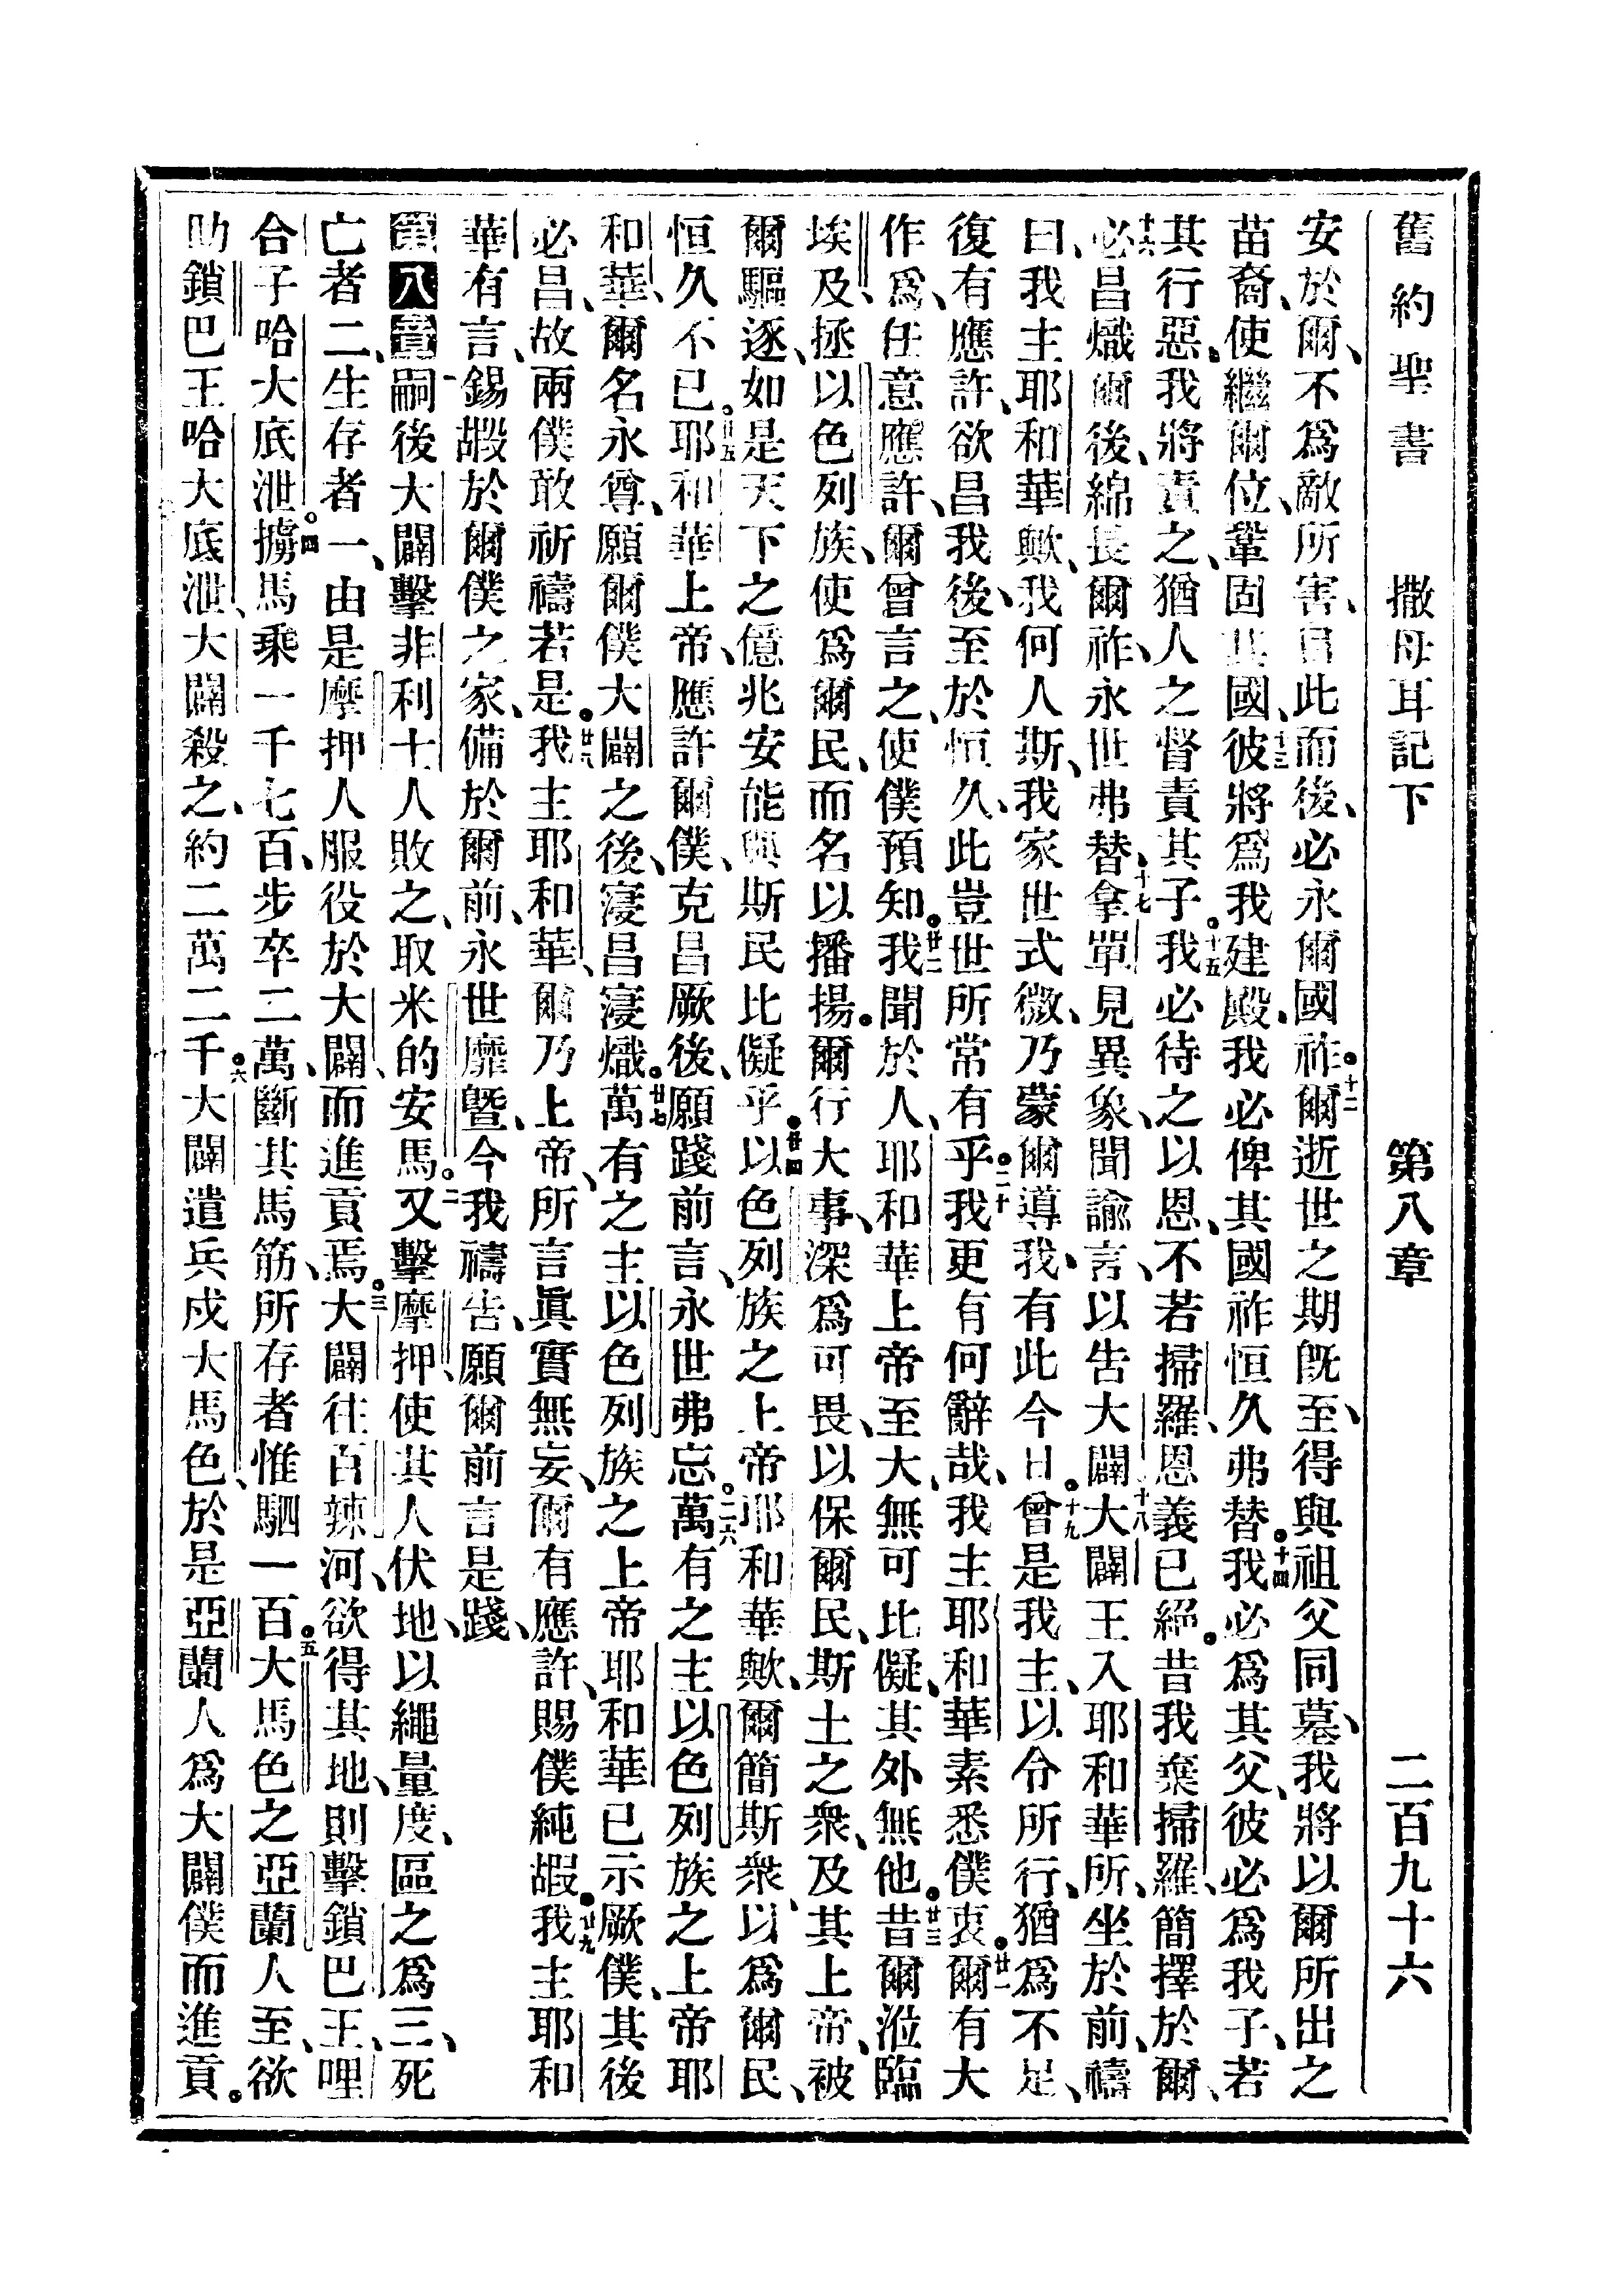 舊約聖書　撒母耳記下　第八章　二百九十六
安於爾、不爲敵所害、自此而後、必永爾國祚。十二爾逝世之期旣至、得與祖父同墓、我將以爾所出之
苗裔、使繼爾位、鞏固其國、十三彼將爲我建殿、我必俾其國祚恒久弗替。十四我必爲其父、彼必爲我子、若
其行惡、我將責之、猶人之督責其子。十五我必待之以恩、不若掃羅、恩義已絕。昔我棄掃羅、簡擇於爾、
十六必昌熾爾後、綿長爾祚、永世弗替、十七拿單見異象、聞諭言、以告大闢、十八大闢王入耶和華所、坐於前、禱
曰、我主耶和華歟、我何人斯、我家世式微、乃蒙爾導我、有此今日。十九曾是我主、以今所行、猶爲不足、
復有應許、欲昌我後、至於恒久、此豈世所常有乎。二十我更有何辭哉、我主耶和華素悉僕衷。廿一爾有大
作爲、任意應許、爾曾言之、使僕預知。廿二我聞於人、耶和華上帝至大、無可比儗、其外無他。廿三昔爾涖臨
埃及、拯以色列族、使爲爾民、而名以播揚。爾行大事、深爲可畏、以保爾民、斯土之衆、及其上帝、被
爾驅逐、如是天下之億兆安能與斯民比儗乎。廿四以色列族之上帝耶和華歟、爾簡斯衆、以爲爾民、
恒久不已。廿五耶和華上帝、應許爾僕、克昌厥後、願踐前言、永世弗忘。二六萬有之主以色列族之上帝耶
和華、爾名永尊、願爾僕大闢之後、寖昌寖熾。廿七萬有之主以色列族之上帝耶和華已示厥僕、其後
必昌、故兩僕敢祈禱若是。廿八我主耶和華、爾乃上帝、所言眞實無妄、爾有應許、賜僕純嘏。廿九我主耶和
華有言、錫嘏於爾僕之家、備於爾前、永世靡曁、今我禱告、願爾前言是踐、
第八章一嗣後大闢擊非利士人敗之、取米的安馬。二又擊摩押、使其人伏地、以繩量度、區之爲三、死
亡者二、生存者一、由是摩押人服役於大闢、而進貢焉。三大闢往百辣河、欲得其地、則擊鎖巴王、哩
合子哈大底泄。四擄馬乘一千七百、步卒二萬、斷其馬筋、所存者惟駟一百。五大馬色之亞蘭人至、欲
助鎖巴王哈大底泄、大闢殺之、約二萬二千。六大闢遣兵戍大馬色、於是亞蘭人爲大闢僕而進貢。